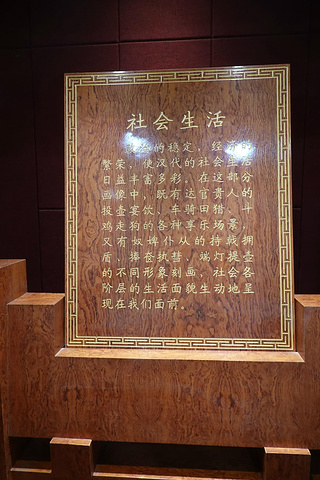 社会生活
的稳定，经
繁荣，使汉代的社会生活
日益丰富多彩，在这部分
画像中，既有达官贵人的
投壶宴饮、车骑田猎、斗
鸡走狗的各种享乐场景，
又有奴婢仆从的持戟拥
盾、捧奁执彗、端灯提壶
的不同形象刻画，社会各
阶层的生活面貌生动地呈
现在我们面前。